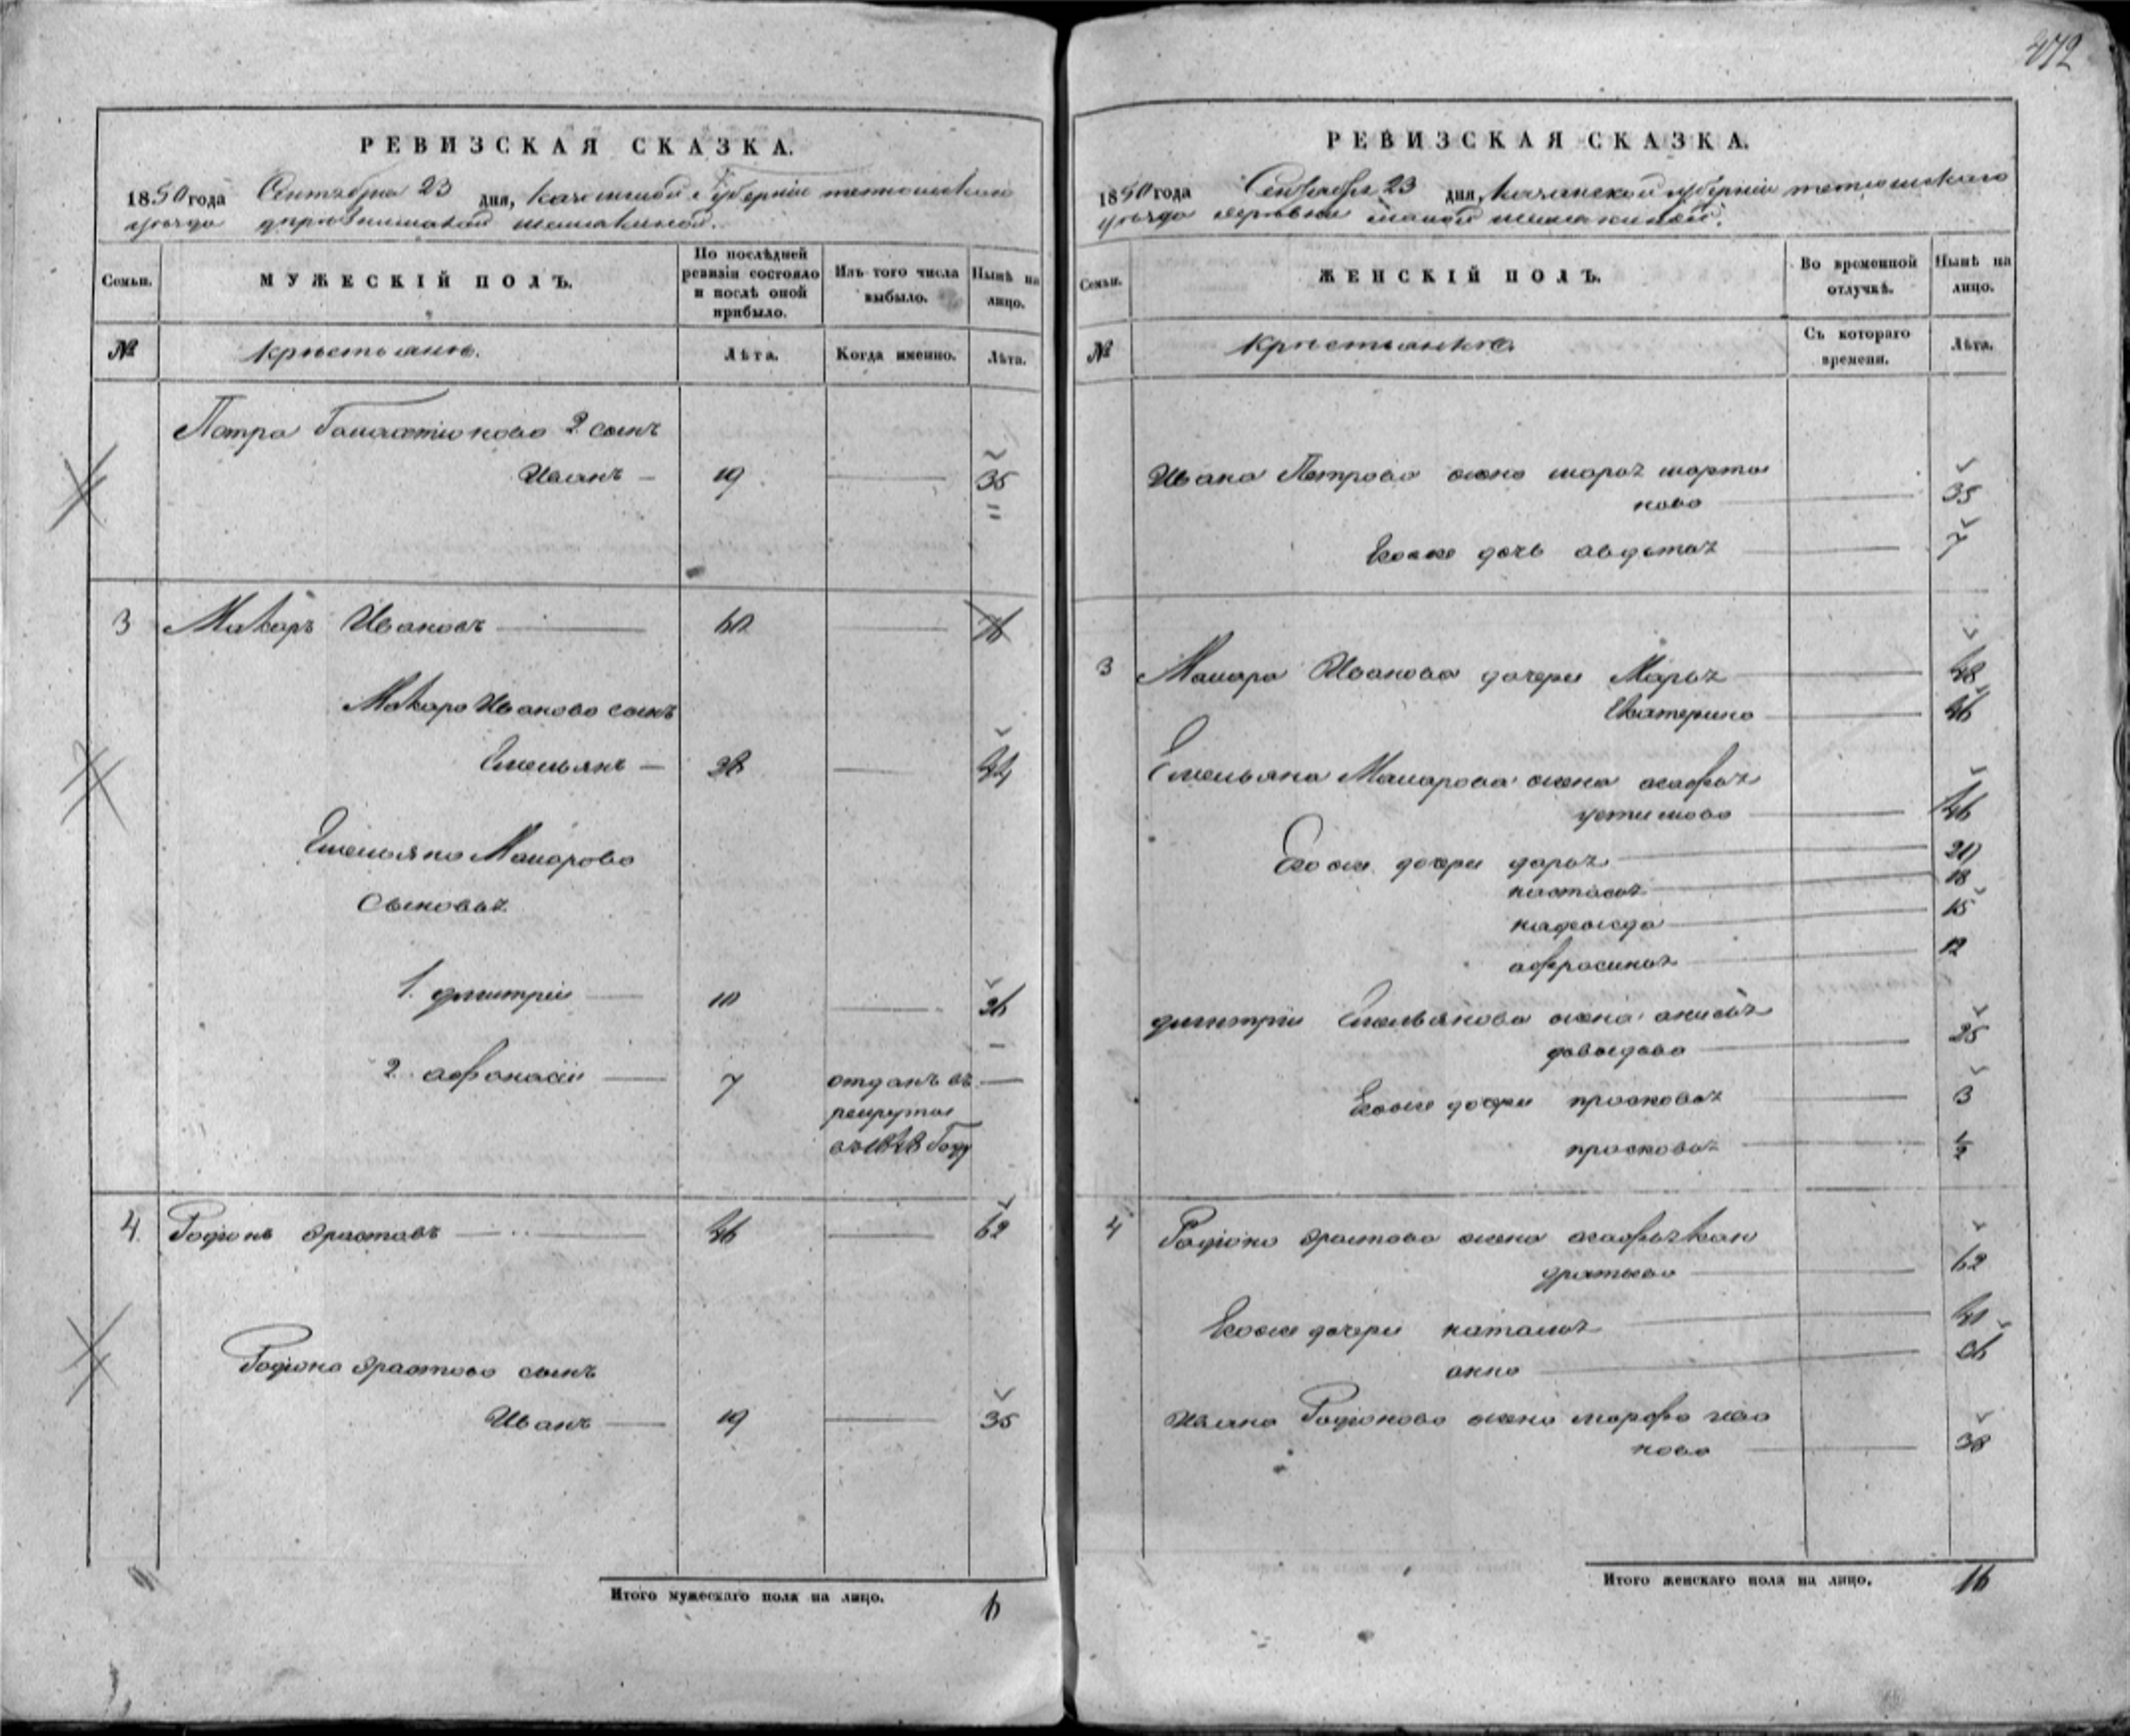 472
РЕВИЗСКАЯ СКАЗКА.
1850 года Сентября 23 дня, казанской Губернии тетюшскаго
уезда
Семьи.
МУЖЕСКІЙ ПОЛЪ.
По послѣдней ревизіи состояло и послѣ оной прибыло.
Изъ того числа выбыло.
Нынѣ на лицо.
№
крестьяне.
Лѣта.
Когда именно.
Лѣта.
Петра 2 сынъ
Иванъ — 19 — 35
3 Макаръ Ивановъ — 60 — 76
Макара Иванова сынъ
Емельянъ — 28 — 44
Емельяна Макарова
Сыновья
1. димитрiи — 10 — 26
2. афонасiи — 7 отданъ въ —
рекруты
въ 1848 Году
4. Родiонъ Ерастовъ — 46 — 62
Родiона Ерастова сынъ
Иванъ — 19 — 35
Итого мужескаго пола на лицо. 6
РЕВИЗСКАЯ СКАЗКА.
1850 года Сентября 23 дня, казанской губернии тетюшскаго
уезда деревни
Семьи.
ЖЕНСКІЙ ПОЛЪ.
Во временной отлучкѣ.
Нынѣ на лицо.
№
Съ котораго времени.
Лѣта.
Ивана Петрова жена марья марты
нова — 35
Егоже дочь авдотья — 7
3 Макара Иванова дочери Марья — 48
Екатерина — 46
Емельяна Макарова жена агафья
устинова — 46
Егоже дочери дарья — 20
настасья — 18
надежда — 15
афросинья — 12
димитрiи Емельянова жена анисья
давыдова — 25
Егоже дочери прасковья — 3
прасковья — ½
4 Родiона Ерастова жена агафья кон
дратьева — 62
Егоже дочери наталья —
анна — 26
Ивана Родiонова жена марфа
нова — 38
Итого женскаго пола на лицо. 16